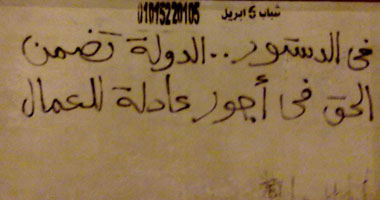 شباب 6 ابريل 01015220105
فى الدستور..الدولة تضمن
الحق فى أجور عادلة للعمال